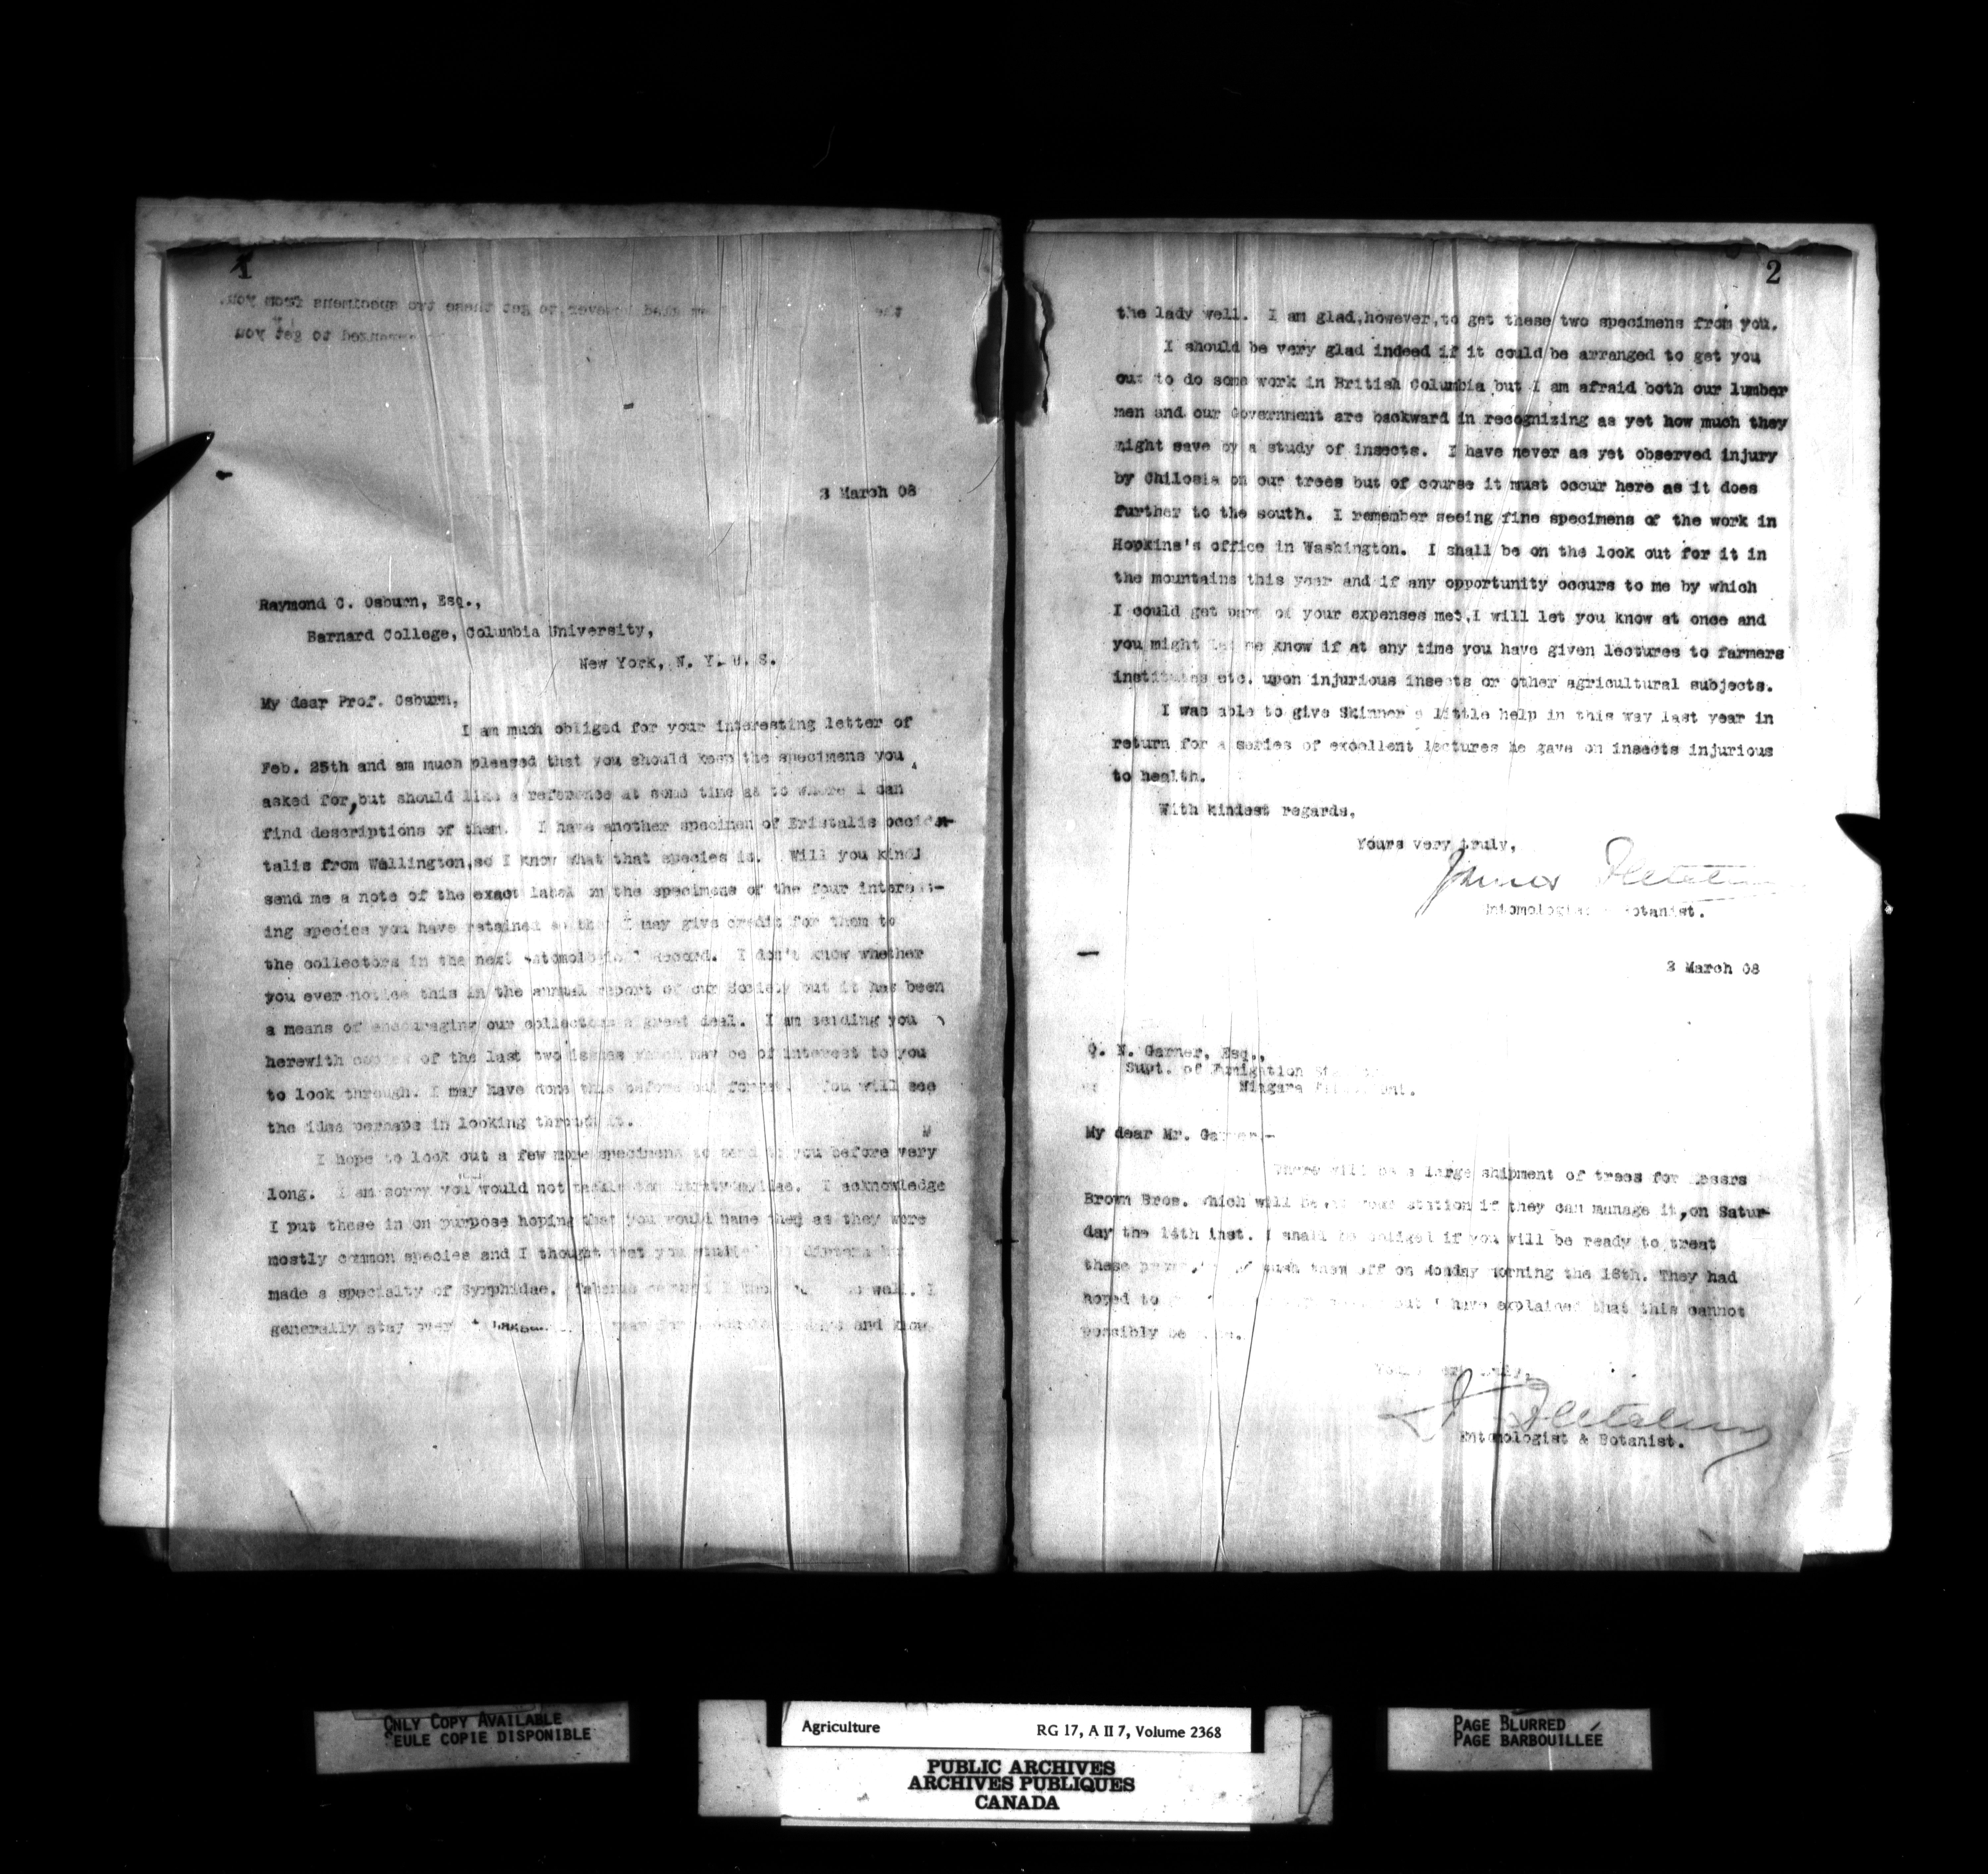 1
3 March 08
Raymond C. Osburn, Esq.,
Barnard College, Columbia University,
New York, N. Y. U. S.
My dear Prof. Osburn,
I am much obliged for your interesting letter of
Feb. 25th and am much pleased that you should keep the specimens you
asked for, but should like a reference at some time as to where I can
find descriptions of them. I have another specimen of Eristalis occiden-
talis from Wellington, so I know what that species is. Will you kindl
send me a note of the exact label on the specimens of the four interest-
ing species you have retained so that I may give credit for them to
the collectors in the next Record. I don't know whether
you ever notice this in the annual report of our Society but it has been
a means of encouraging our collectors a great deal. I am sending you
herewith copies of the last two issues which may be of interest to you
to look through. I may have done this before but forget. You will see
the idea perhaps in looking through it.
I hope to look out a few more specimens to send to you before very
long. I am sorry you would not tackle the I acknowledge
I put these in on purpose hoping that you would name them as they were
mostly common species and I thought that you studied
made a specialty of Syrphidae. well. I
generally stay over and know
2
the lady well. I am glad, however, to get these two specimens from you.
I should be very glad indeed if it could be arranged to get you
out to do some work in British Columbia but I am afraid both our lumber
men and our Government are backward in recognizing as yet how much they
might save by a study of insects. I have never as yet observed injury
by Chilosia on our trees but of course it must occur here as it does
further to the south. I remember seeing fine specimens of the work in
Hopkins's office in Washington. I shall be on the look out for it in
the mountains this year and if any opportunity occurs to me by which
I could get part of your expenses met, I will let you know at once and
you might let me know if at any time you have given lectures to farmers
institutes etc. upon injurious insects or other agricultural subjects.
I was able to give Skinner a little help in this way last year in
return for a series of excellent lectures he gave on insects injurious
to health.
With kindest regards,
Yours very truly,
James Fletcher
Entomologist & Botanist.
3 March 08
Garner, Esq.,
Supt. of Fumigation
Niagara Ont.
My dear Mr. Garner,-
There will be a large shipment of trees for Messrs
Brown Bros. which will be at your station if they can manage it, on Satur-
day the 14th inst. I shall be obliged if you will be ready to treat
these push them off on Monday morning the 16th. They had
hoped to but I have explained that this cannot
possibly be
Yours very truly,
J. Fletcher
Entomologist & Botanist.
ONLY COPY AVAILABLE
SEULE COPIE DISPONIBLE
Agriculture RG 17, A II 7, Volume 2368
PUBLIC ARCHIVES
ARCHIVES PUBLIQUES
CANADA
PAGE BLURRED
PAGE BARBOUILLÉE